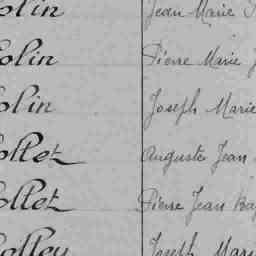 Colin Jean Marie
Colin Pierre Marie
Colin Joseph Marie
Collet Auguste Jean
Collet Pierre Jean Bap
Colley Joseph Marie